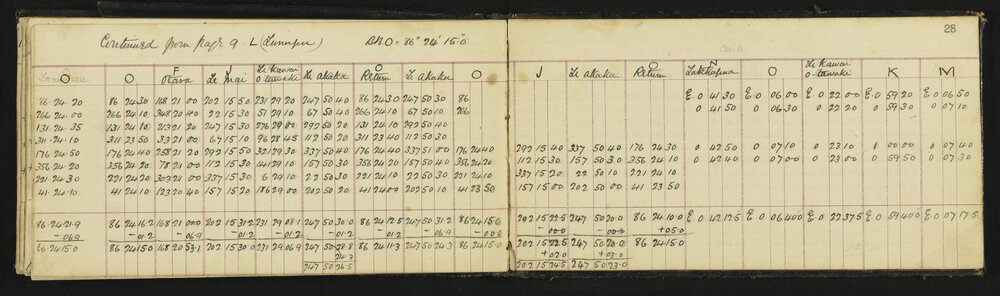 Continued from page 9 : L BRO = 86° 24' 15"0
28
F J Te Kawai O
O O Otara Te Mai o tawaki Te Akaku Return Te Akaku O
86.24.20 86 24 30 168 21 00 202 15 50 231 29 20 247 50 40 86 24 30 247 50 30 86
266 24 00 266 24 10 348 20 40 22 15 30 51 29 10 67 50 40 266 24 10 67 50 10 266
131 24.35 131 24 10 213 21 20 247 15 30 276 29 00 292 50 20 131 24 10 292 50 40
311.24.10 311 23 50 33 21 00 67 15 10 96 28 45 112 50 20 311 23 40 112 50 30
176.24.50 176 24 40 258 21 20 292 15 50 321 29 30 337 50 40 176 24 30 337 51 00 176 24 40
356.24.20 356 24 20 78 21 00 112 15 30 141 29 10 157 50 30 356 24 20 157 50 40 356 24 20
221.24.30 221 24 20 303 21 00 337 15 30 6 29 10 22 50 30 221 24 10 22 50 30 221 24 10
41.24.10 41 24 10 123 20 40 157 15 20 186 29 00 202 50 20 41 24 00 202 50 10 41 23 50
86.24 21.9 86 24 16.2 168 21 00.0 202 15 31.2 231 29 08.1 247 50 30.0 86 24 12.5 247 50 31.2 86 24 15.0
- 06.9 - 01.2 - 06.9 - 01.2 - 01.2 - 01.2 - 01.2 - 06.9 - 00.0
86 24 15.0 86 24 15.0 168 20 53.1 202 15 30.0 231 29 06.9 247 50 28.8 86 24 11.3 247 50 24.3 86 24 15.0
24.3
247 50 26.5
O N Te Kawai
J Te Akaku Return O o tawaki K M
E. 0 41 30 E. 0 06 00 E. 0 22 00 E. 0 59 20 E. 0 06 50
0 41 50 0 06 30 0 22 20 0 59 30 0 07 10
292 15 40 337 50 40 176 24 30 0 42 50 0 07 10 0 23 10 1 00 00 0 07 40
112 15 30 157 50 30 356 24 10 0 42 40 0 07 00 0 23 00 0 59 50 0 07 30
337 15 20 22 50 10 221 24 10
157 15 00 202 50 00 41 23 50
202 15 22.5 247 50 20.0 86 24 10.0 E. 0 42 12.5 E. 0 06 40.0 E. 0 22 37.5 E. 0 59 40.0 E. 0 07 17.5
- 00.0 - 00.0 + 05.0
202 15 22.5 247 50 20.0 86 24 15.0
+ 02.0 + 03.0
202 15 24.5 247 50 23.0